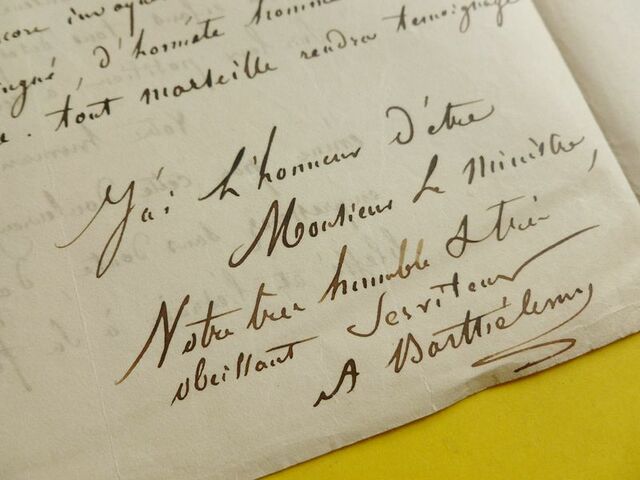 core invoqu
ingné, d'honnête homme
e. tout marseille rendra temoignage
J'ai L'honneur D'être
Monsieur Le Ministre,
Votre tres humble & très
obeissant Serviteur
A Barthélemy